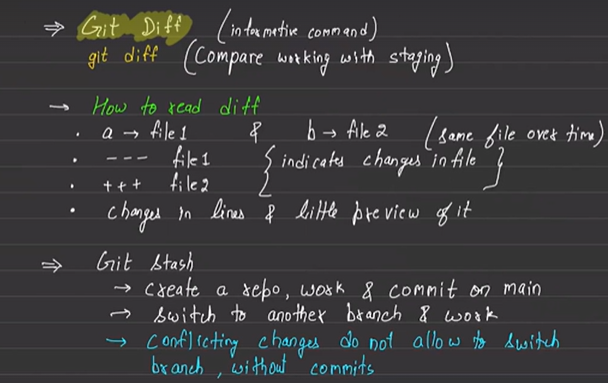 ⇒ Git Diff (informative command)
git diff (Compare working with staging)
→ How to read diff
• a → file1 & b → file 2 (same file over time)
• --- file1 { indicates changes in file }
• +++ file2
• changes in lines & little preview of it
⇒ Git Stash
→ Create a repo, work & commit on main
→ switch to another branch & work
→ conflicting changes do not allow to switch
branch, without commits